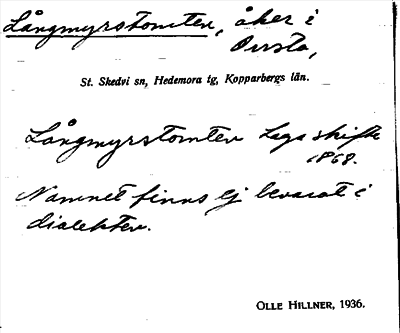 Långmyrstomten, åker i
Persta,
St. Skedvi sn, Hedemora tg, Kopparbergs län.
Långmyrstomten Laga skifte
1868.
Namnet finns ej bevarat i
dialekten.
OLLE HILLNER, 1936.